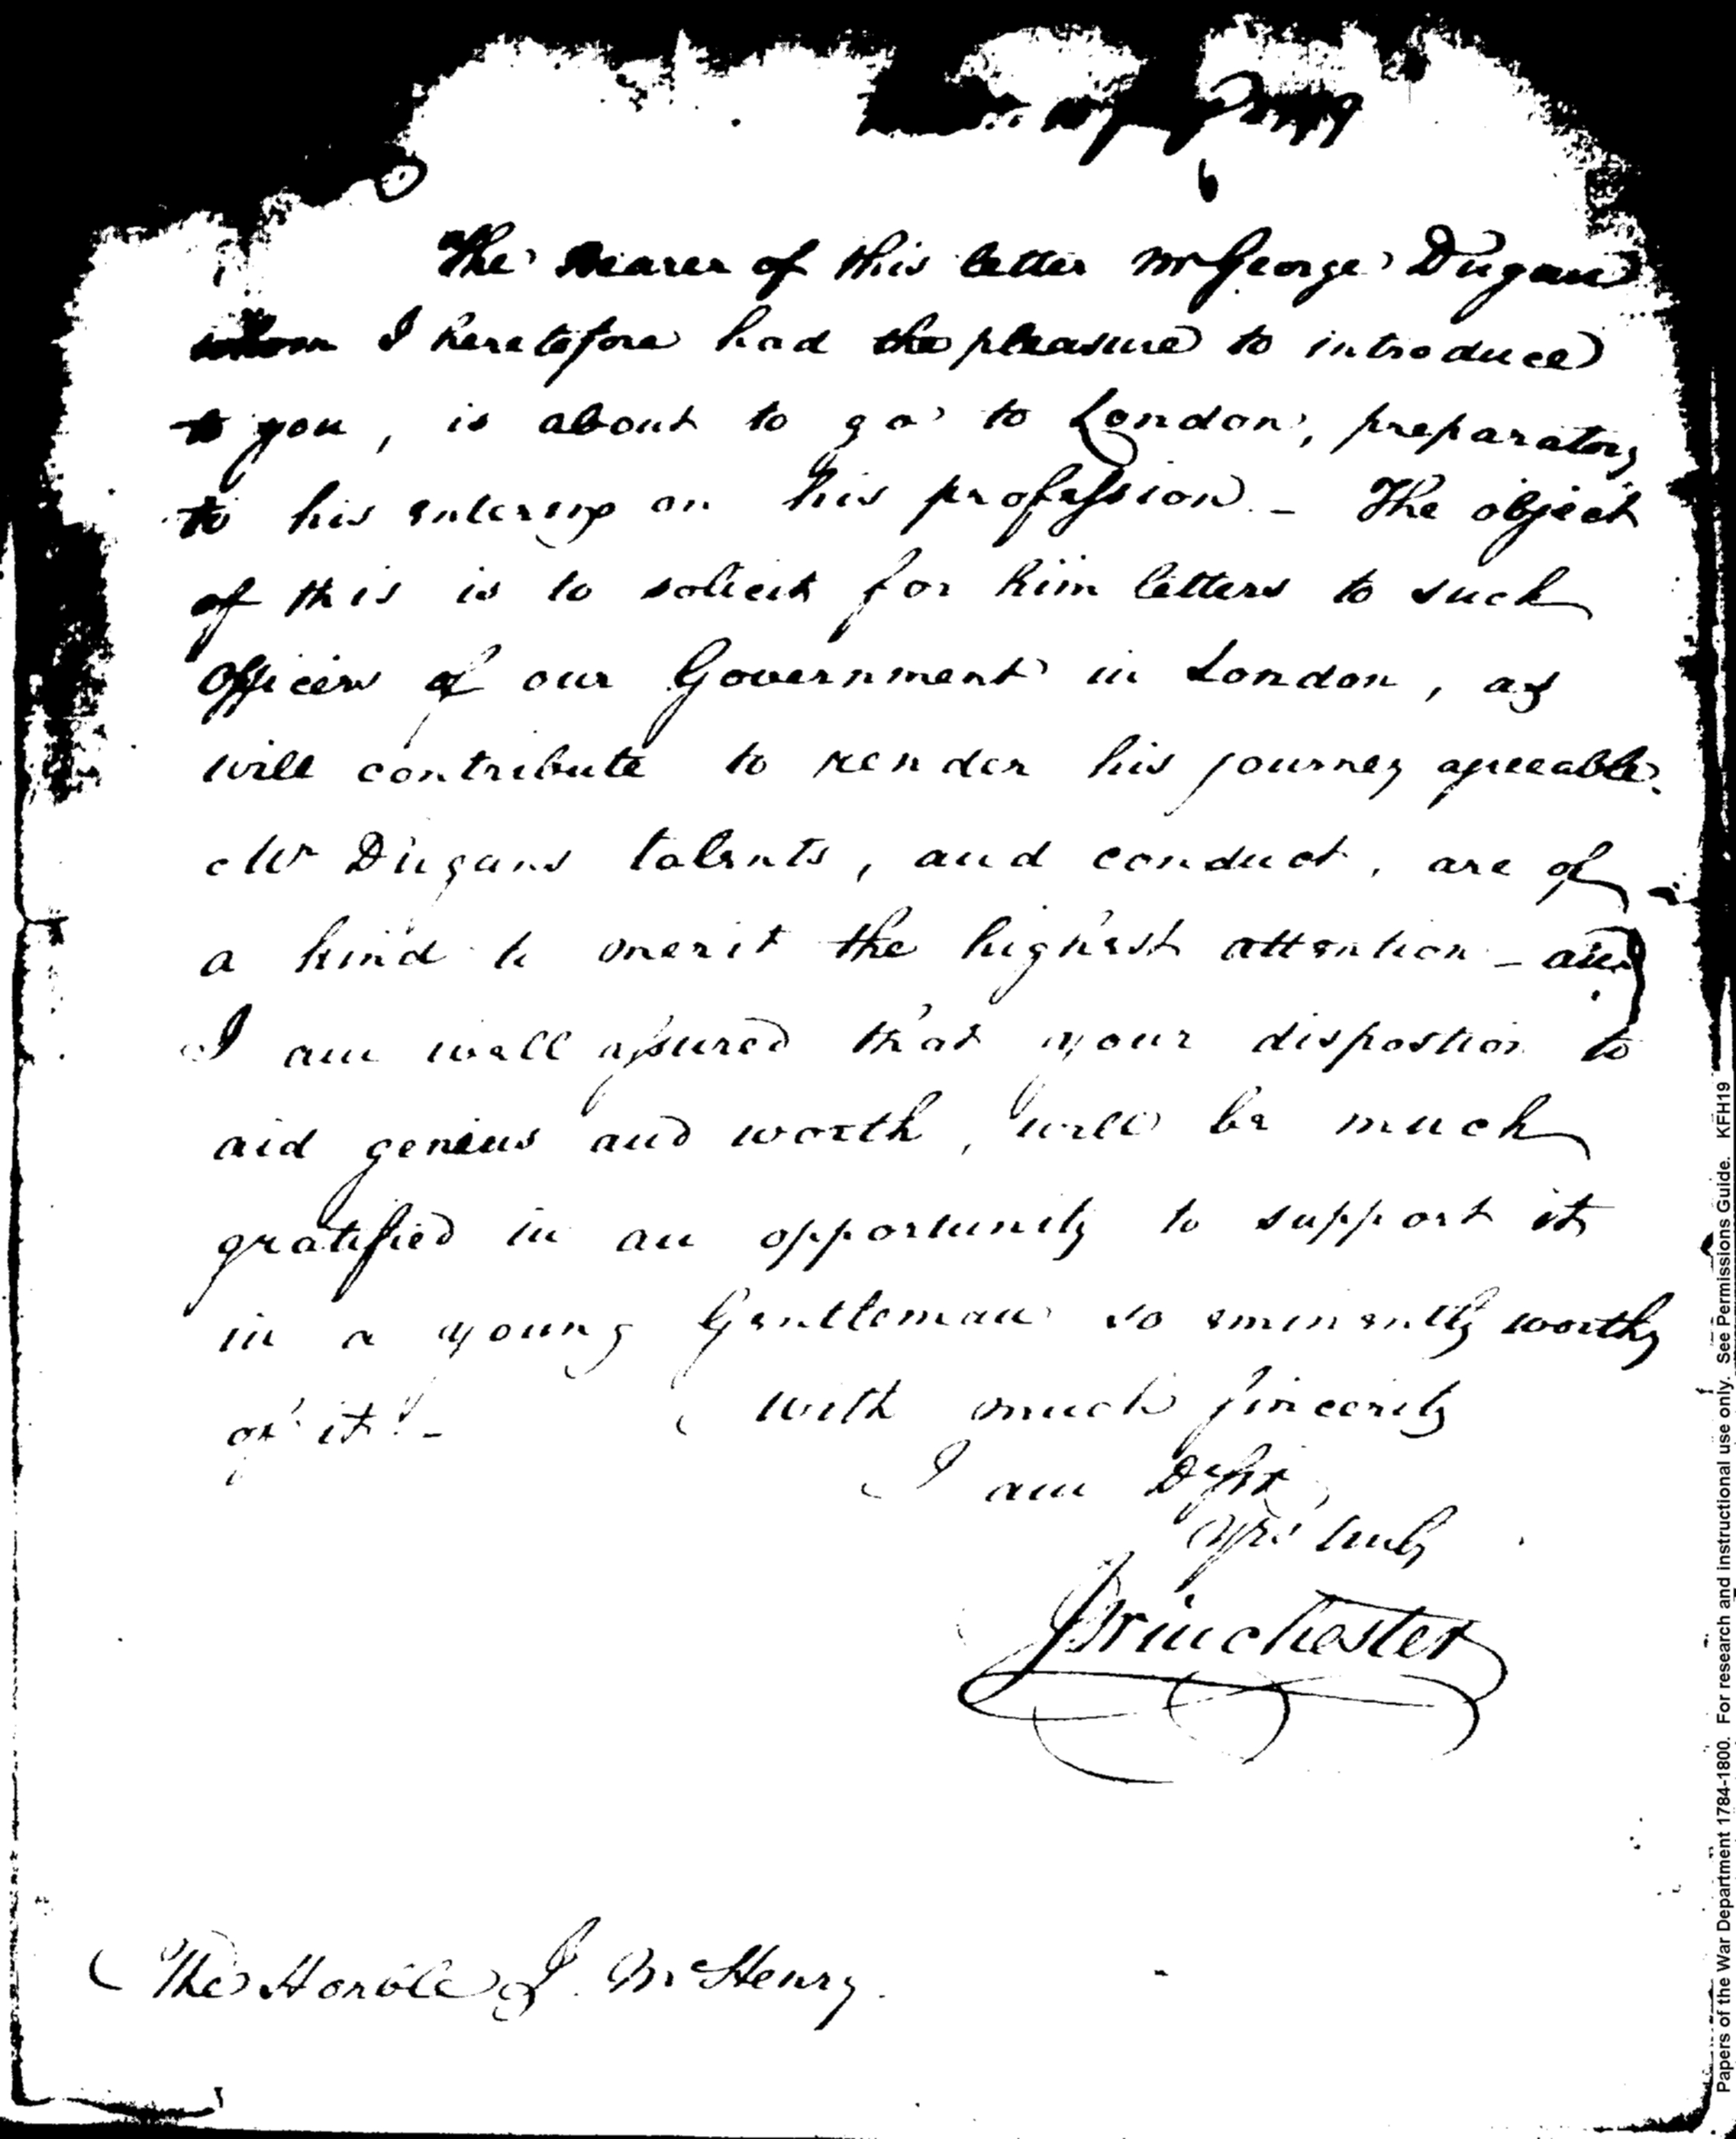 The Bearer of this letter Mr George Dugan
whom I heretofore had the pleasure to introduce
to you, is about to go to London, preparatory
to his entering on his profession - The object
of this is to solicit for him letters to such
Officers of our Government in London, as
will contribute to render his journey agreeable.
Mr Dugans talents, and conduct, are of
a kind to merit the highest attention - and
I am well assured that your dispostion to
aid genius and worth, will be much
gratified in an opportunity to support it
in a young Gentleman so eminently worthy
of it! -
with much sincerity
I am D Sir
Yrs truly
J Winchester
The Honble J. McHenry.
Papers of the War Department 1784-1800. For research and instructional use only. See Permissions Guide. KFH19